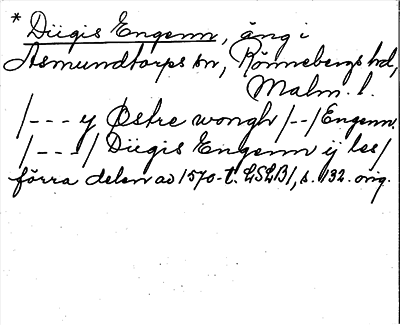 * Diigis Engenn, äng i
Asmundtorps sn, Rönnebergs hd,
Malm. l.
/--- y Østre wongh /--/ Engenn.
/---/ Diigis Engenn ij les/
förra delen av 1570-t. LSLB1, s. 132. orig.